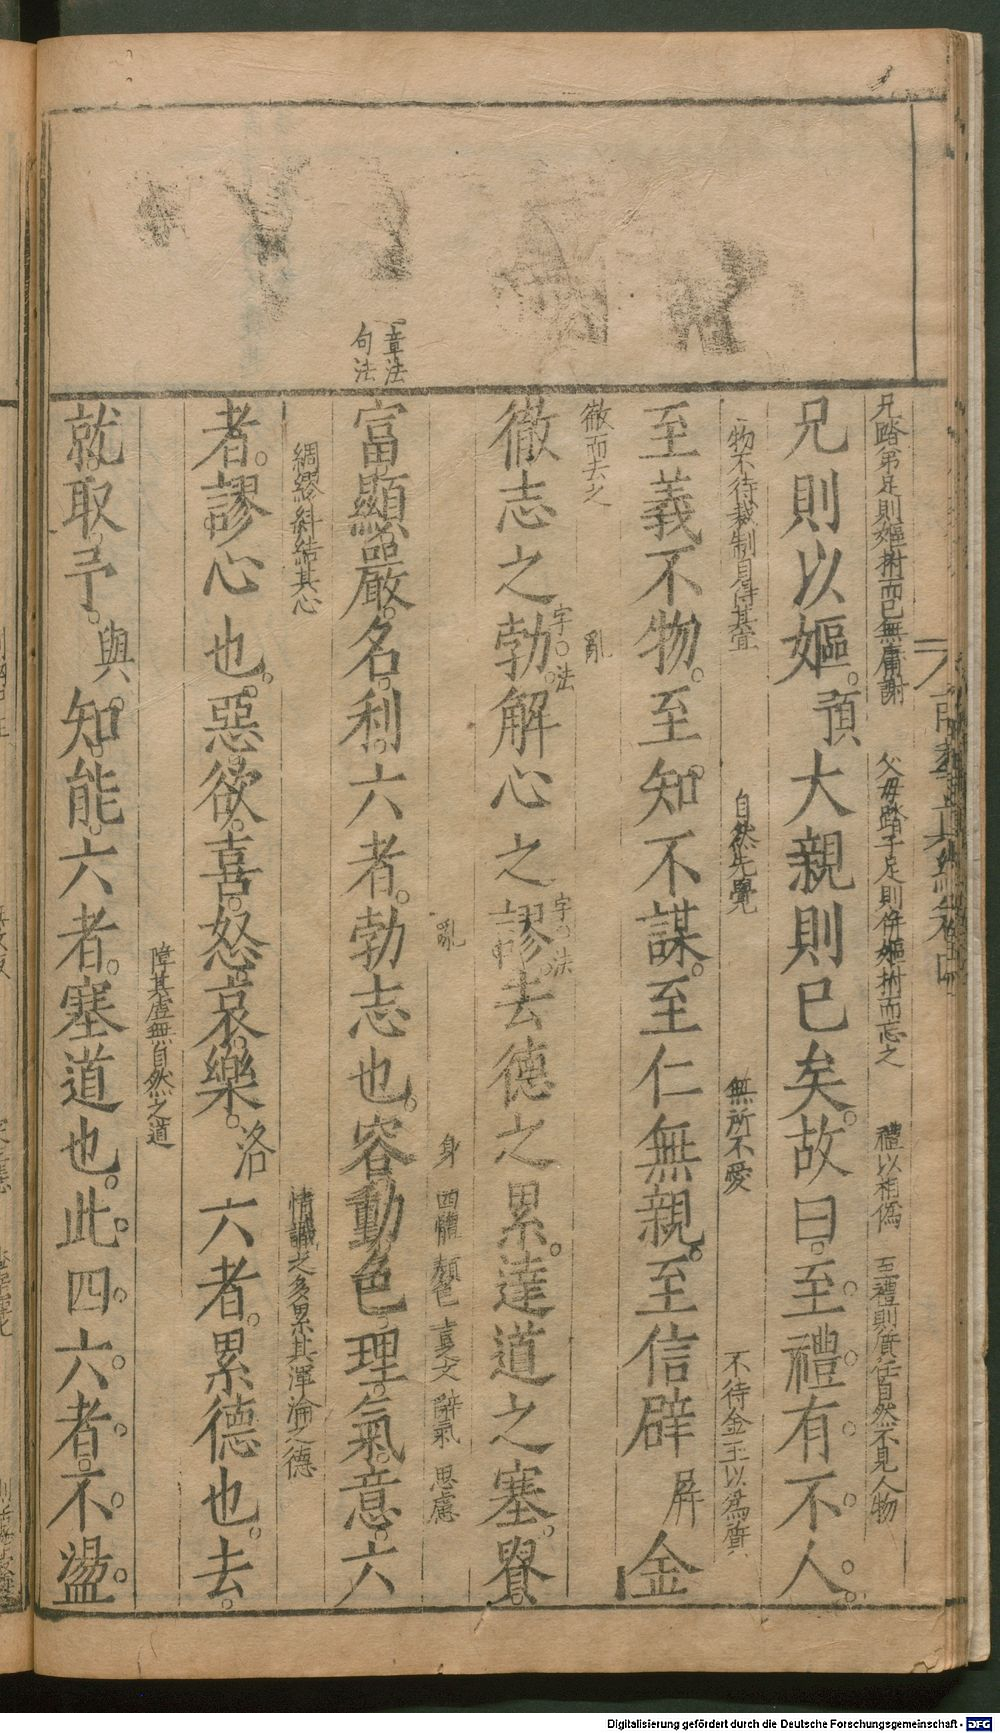 兄踏弟足則嫗拊而已無庸謝 父母踏子足則併嫗拊而忘之 禮以相偽 至禮則質任自然不見人物
兄則以嫗預大親則已矣故曰至禮有不人
物不待裁制自得其宜 自然先覺 無所不愛 不待金玉以為質
至義不物至知不謀至仁無親至信辟屏金
徹而去之 亂
徹志之勃解心之謬去德之累達道之塞貴
字法 字法
章法
句法
亂 身 四體 顏色 辭氣 思慮
富顯嚴名利六者勃志也容動色理氣意六
綢繆糾結其心 情識之多累其渾淪之德
者謬心也惡欲喜怒哀樂洛六者累德也去
障其虛無自然之道
就取予與知能六者塞道也此四六者不盪
Digitalisierung gefördert durch die Deutsche Forschungsgemeinschaft - DFG